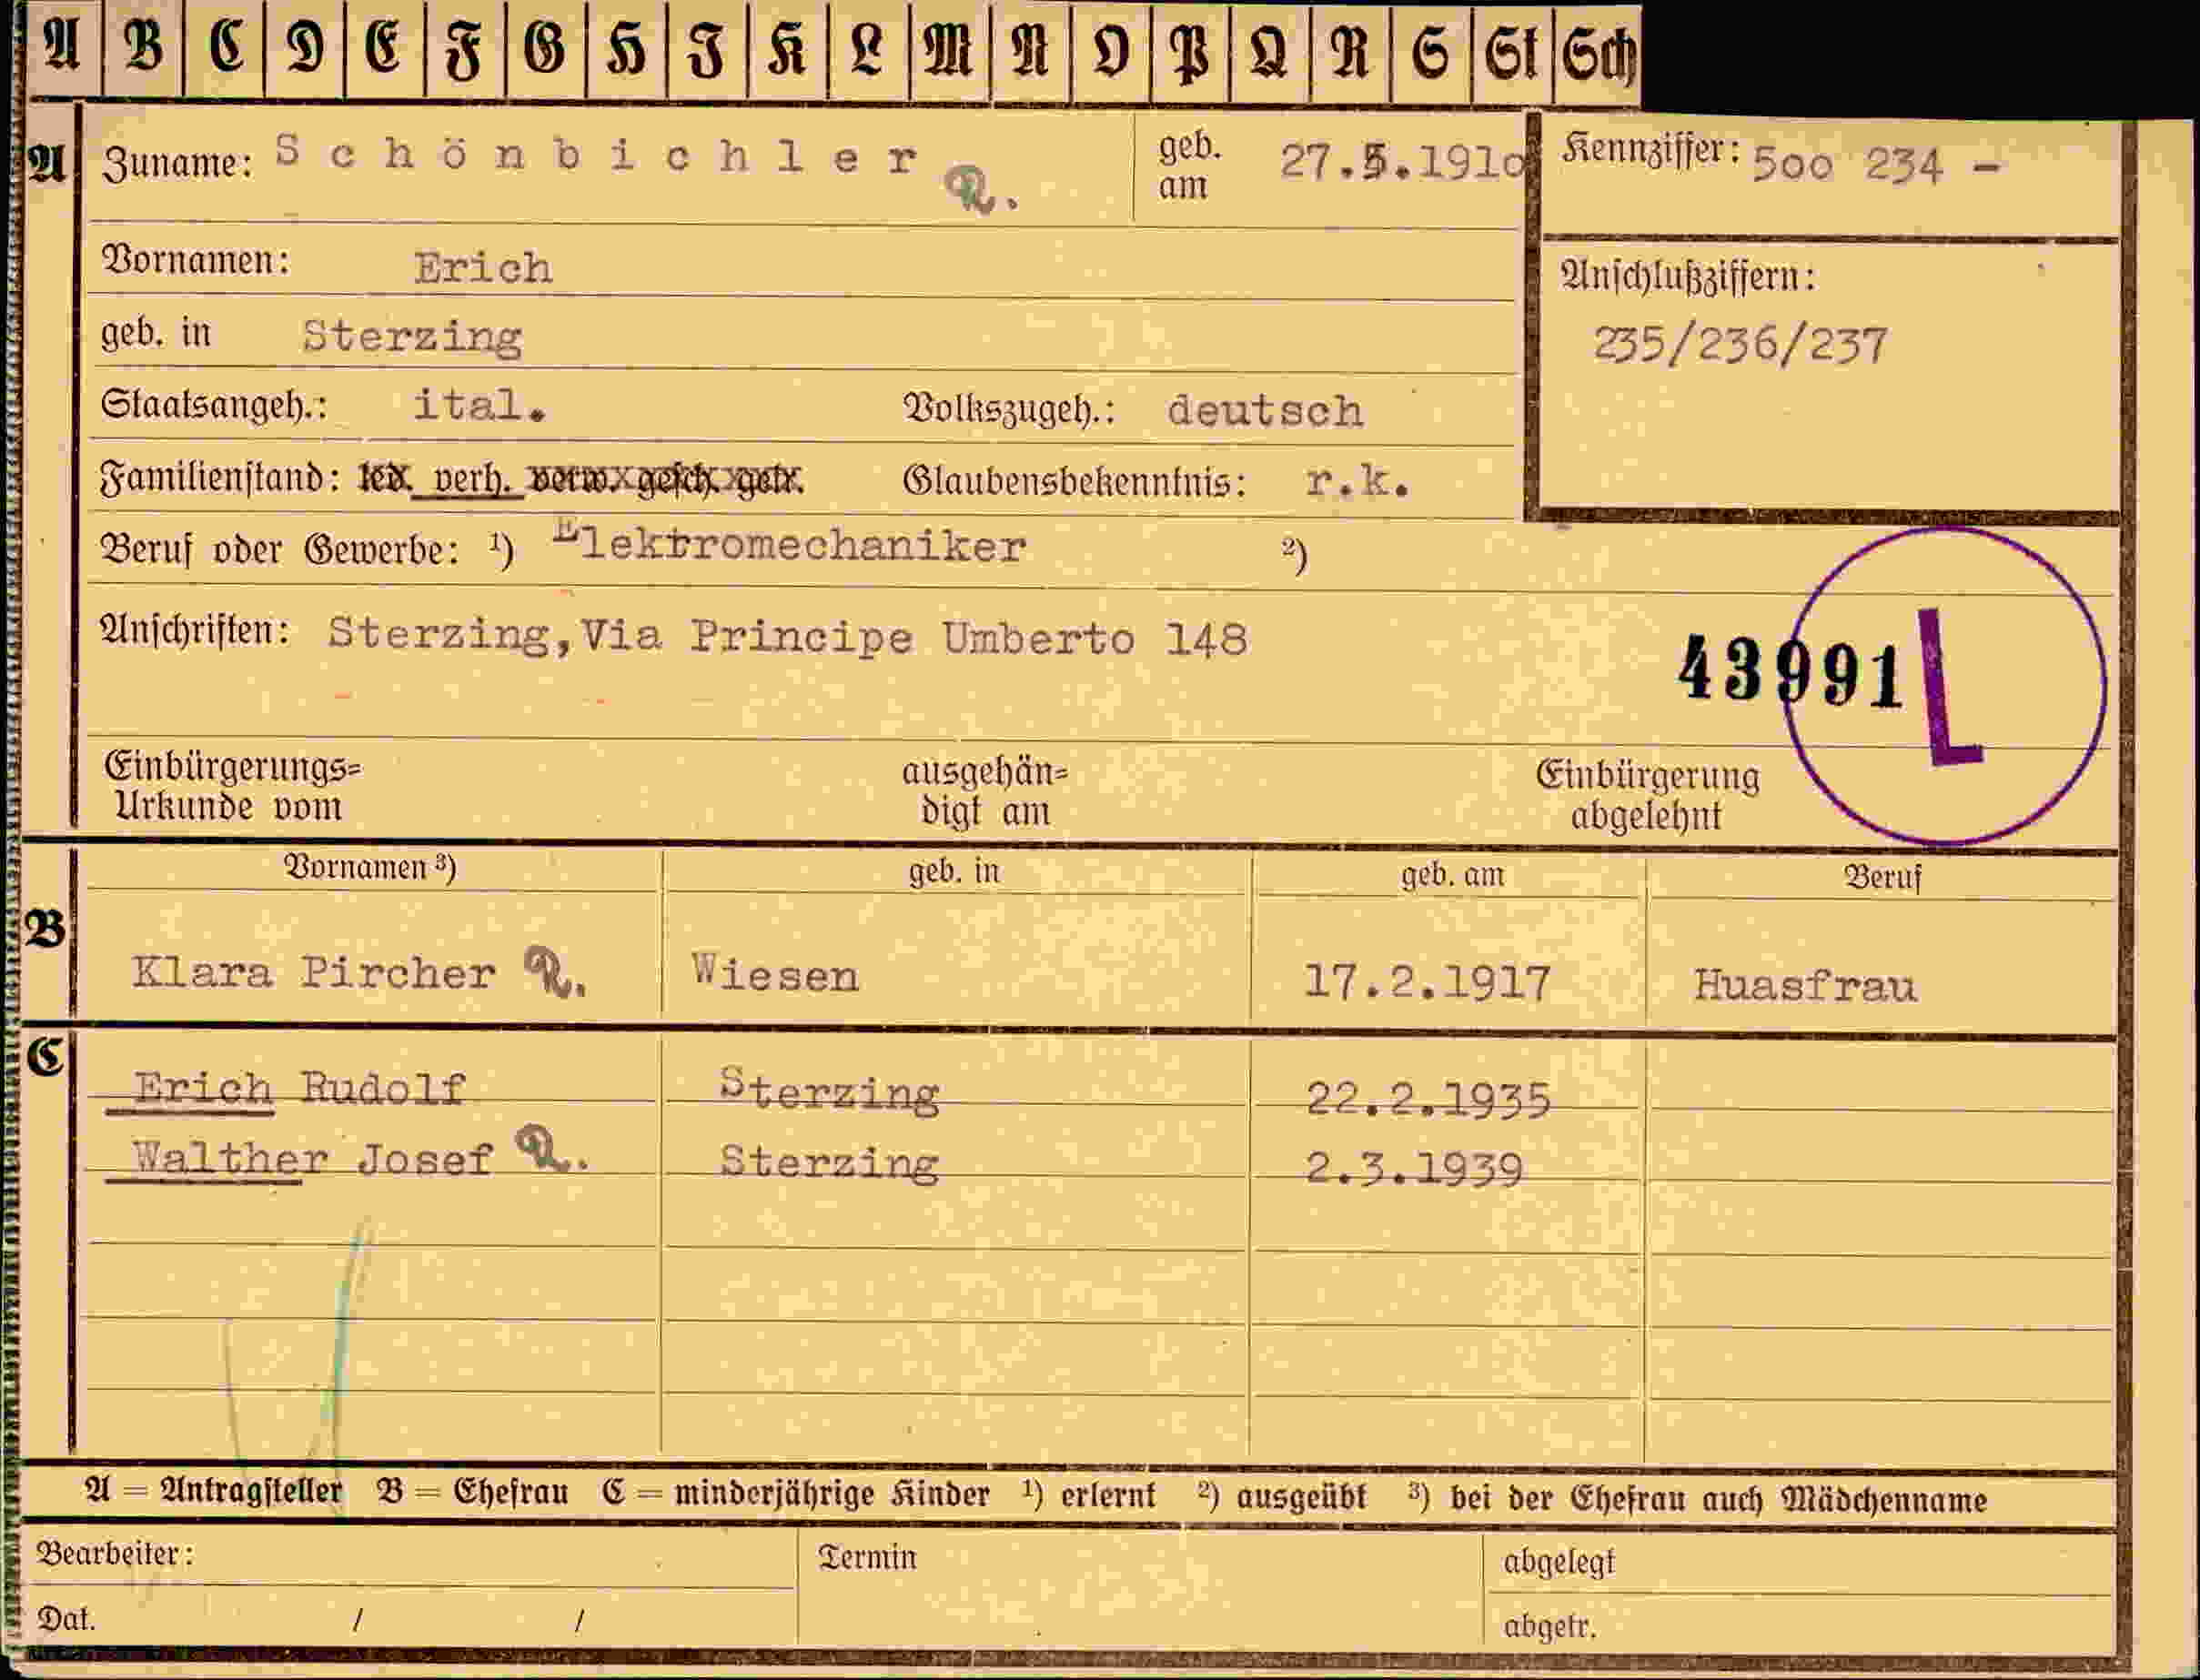 A B C D E F G H I K L M N O P Q R S St Sch
A Zuname: Schönbichler R. geb. am 27.5.1910 Kennziffer: 500 234 -
Vornamen: Erich
Anschlußziffern:
geb. in Sterzing
235/236/237
Staatsangeh.: ital. Volkszugeh.: deutsch
Familienstand: led. verh. verw. gesch. getr. Glaubensbekenntnis: r.k.
Beruf oder Gewerbe: ¹) Elektromechaniker ²)
Anschriften: Sterzing,Via Principe Umberto 148
43991 L
Einbürgerungs= ausgehän= Einbürgerung
Urkunde vom digt am abgelehnt
Vornamen ³) geb. in geb. am Beruf
B
Klara Pircher R. Wiesen 17.2.1917 Huasfrau
C
Erich Rudolf Sterzing 22.2.1935
Walther Josef R. Sterzing 2.3.1939
A = Antragsteller B = Ehefrau C = minderjährige Kinder ¹) erlernt ²) ausgeübt ³) bei der Ehefrau auch Mädchenname
Bearbeiter: Termin abgelegt
Dat. / / abgetr.